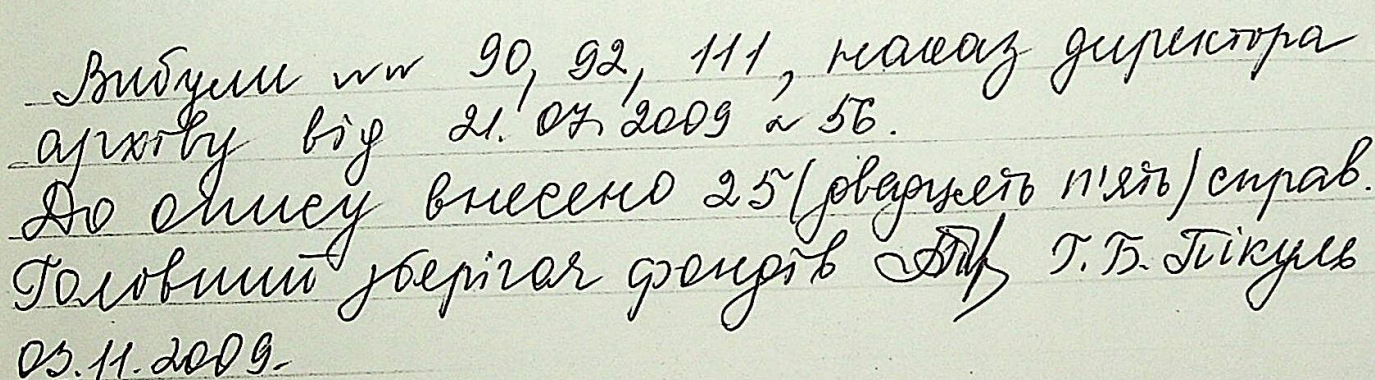 Вибули №№ 90, 92, 111, наказ директора
архіву від 21.07.2009 № 56.
До опису внесено 25 (двадцять п'ять) справ.
Головний зберігач фондів Г.Б. Пікуль
03.11.2009.